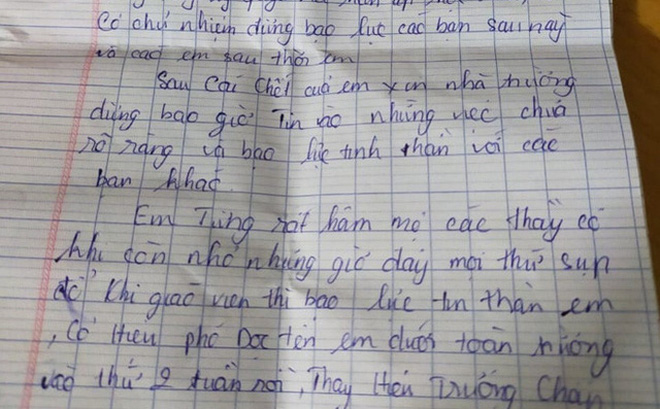 Cô chủ nhiệm đừng bao lực các bạn sau này
và các em sau thời em
Sau cái chết cuả em xin nhà trường
đừng bao giờ Tin vào những viec chưa
rõ ràng và bạo lực tinh thần với các
bạn khac
Em Từng rất hâm mộ các thầy cô
khi còn nhỏ nhưng giờ đây mọi thứ sụp
đổ khi giao viên thì bao lực tin thần em
, Cô Hieu phó Đọc tên em dưới toàn trường
vào thứ 2 tuần rồi, Thay Hiệu Trưởng Chan